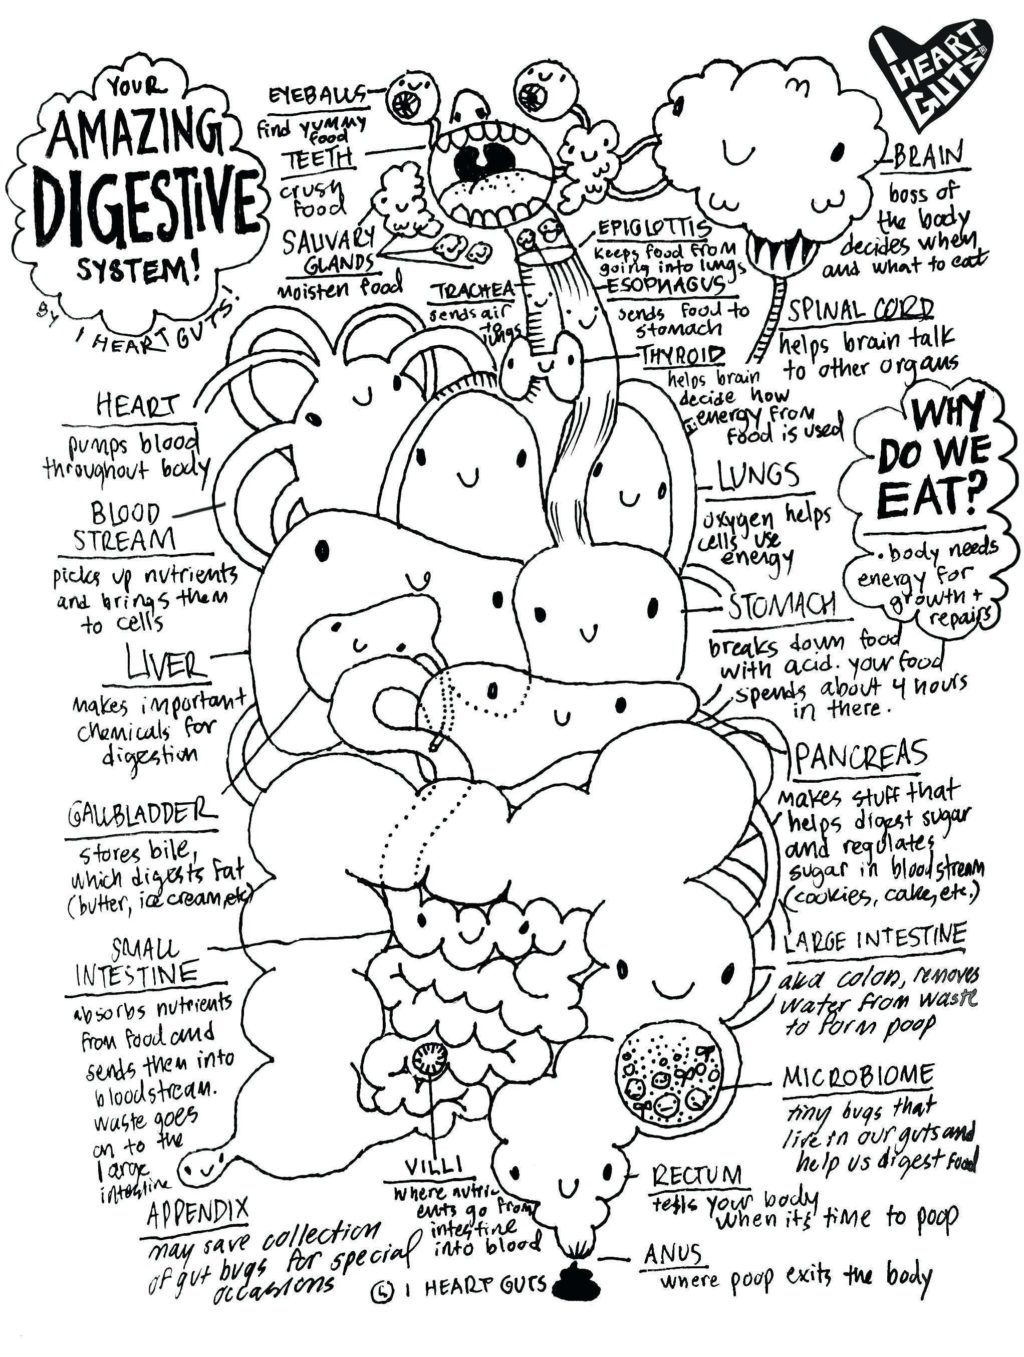 YOUR
AMAZING
DIGESTIVE
SYSTEM!
BY I HEART GUTS!
I
HEART
GUTS®
EYEBALLS
find yummy
food
TEETH
crush
food
SALIVARY
GLANDS
moisten food
TRACHEA
sends air
to
lungs
EPIGLOTTIS
keeps food from
going into lungs
ESOPHAGUS
sends food to
stomach
THYROID
helps brain
decide how
energy from
food is used
BRAIN
boss of
the body
decides when
and what to eat
SPINAL CORD
helps brain talk
to other organs
WHY
DO WE
EAT?
• body needs
energy for
growth +
repairs
HEART
pumps blood
throughout body
BLOOD
STREAM
picks up nutrients
and brings them
to cells
LIVER
makes important
chemicals for
digestion
GALLBLADDER
stores bile,
which digests fat
(butter, ice cream, etc)
SMALL
INTESTINE
absorbs nutrients
from food and
sends them into
bloodstream.
waste goes
on to the
large
intestine
APPENDIX
may save collection
of gut bugs for special
occasions
VILLI
where nutri-
ents go from
intestine
into blood
LUNGS
oxygen helps
cells use
energy
STOMACH
breaks down food
with acid. your food
spends about 4 hours
in there.
PANCREAS
makes stuff that
helps digest sugar
and regulates
sugar in bloodstream
(cookies, cake, etc.)
LARGE INTESTINE
aka colon, removes
water from waste
to form poop
MICROBIOME
tiny bugs that
live in our guts and
help us digest food
RECTUM
tells your body
when it's time to poop
ANUS
where poop exits the body
© I HEART GUTS